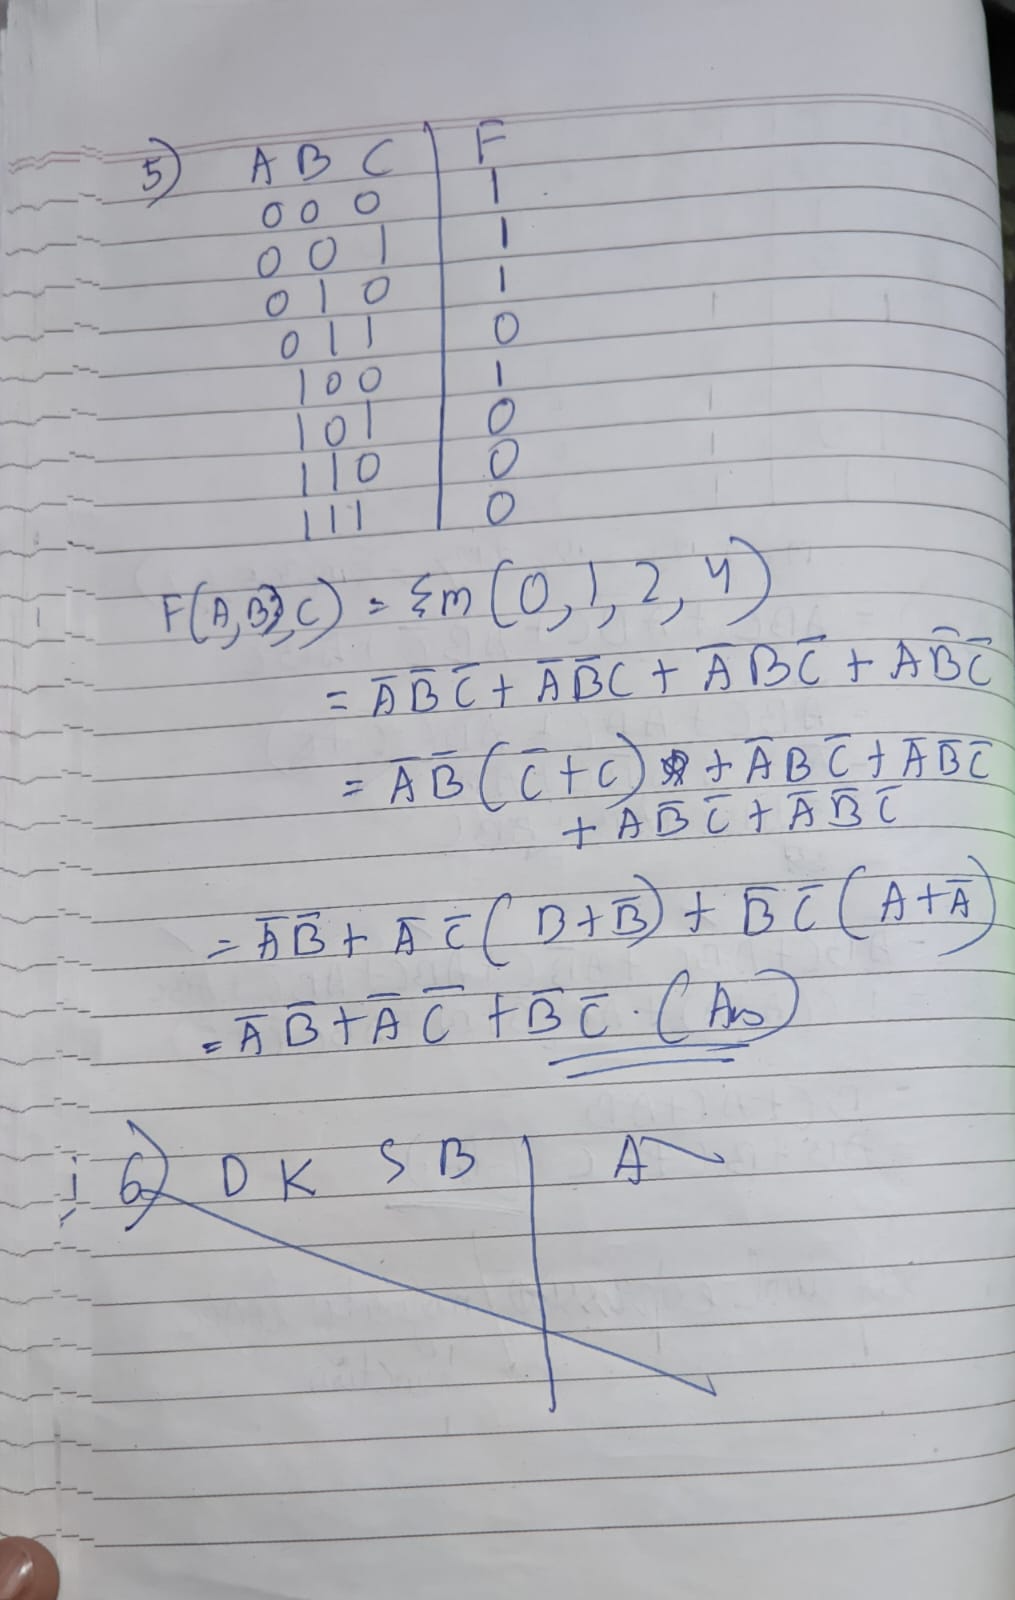 5) A B C | F
0 0 0 | 1
0 0 1 | 1
0 1 0 | 1
0 1 1 | 0
1 0 0 | 1
1 0 1 | 0
1 1 0 | 0
1 1 1 | 0
F(A,B,C) = Σm(0,1,2,4)
= A̅ B̅ C̅ + A̅ B̅ C + A̅ B C̅ + A B̅ C̅
= A̅ B̅ (C̅ + C) + A̅ B C̅ + A̅ B̅ C̅
+ A B̅ C̅ + A̅ B̅ C̅
= A̅ B̅ + A̅ C̅ (B + B̅) + B̅ C̅ (A + A̅)
= A̅ B̅ + A̅ C̅ + B̅ C̅ . (Ans)
6) D K S B | A